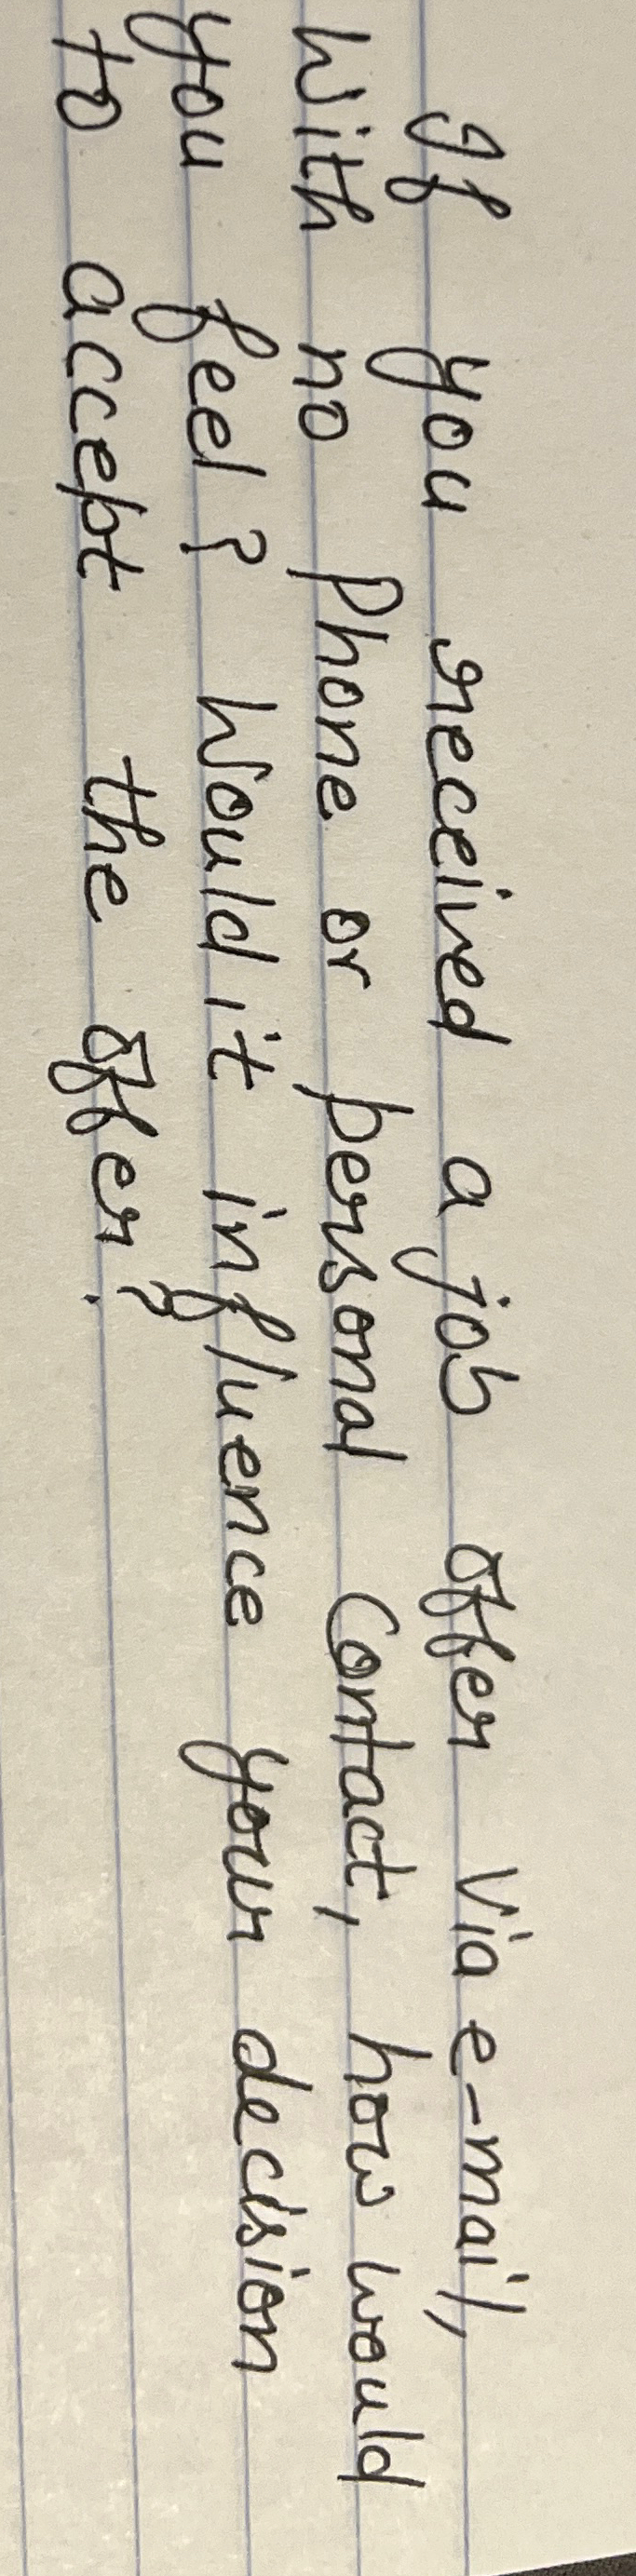 If you received a job offer via e-mail,
with no phone or personal contact, how would
you feel? Would it influence your decision
to accept the offer?